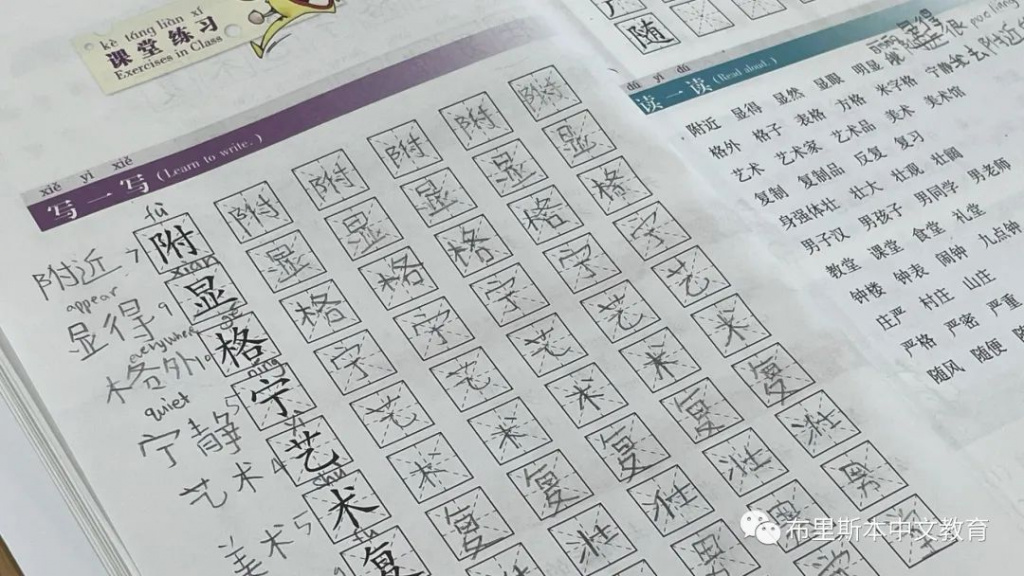 kè táng liàn xí
课堂练习
Exercises in Class
xiě yi xiě
写一写 (Learn to write.)
fù
附近 7 附 附 附 附 附
xiǎn
appear
显得 9 显 显 显 显 显
格外 10 格 格 格 格 格
níng
quiet
宁静 5 宁 宁 宁 宁 宁
艺术 4 艺 艺 艺 艺 艺
美术 5 术 术 术 术 术
复 复 复 复 复
壮 壮 壮 壮
男
随
读一读 (Read aloud.)
附近 显得 显然 显眼 明显
格外 格子 表格 方格 米字格 宁静
艺术 艺术家 艺术品 美术 美术馆
复制 复制品 反复 复习
身强体壮 壮大 壮观 壮阔
男子汉 男孩子 男同学 男老师
教堂 课堂 食堂 礼堂
钟楼 钟表 闹钟 九点钟
庄严 村庄 山庄
严格 严密 严重
随风 随便
布里斯本中文教育